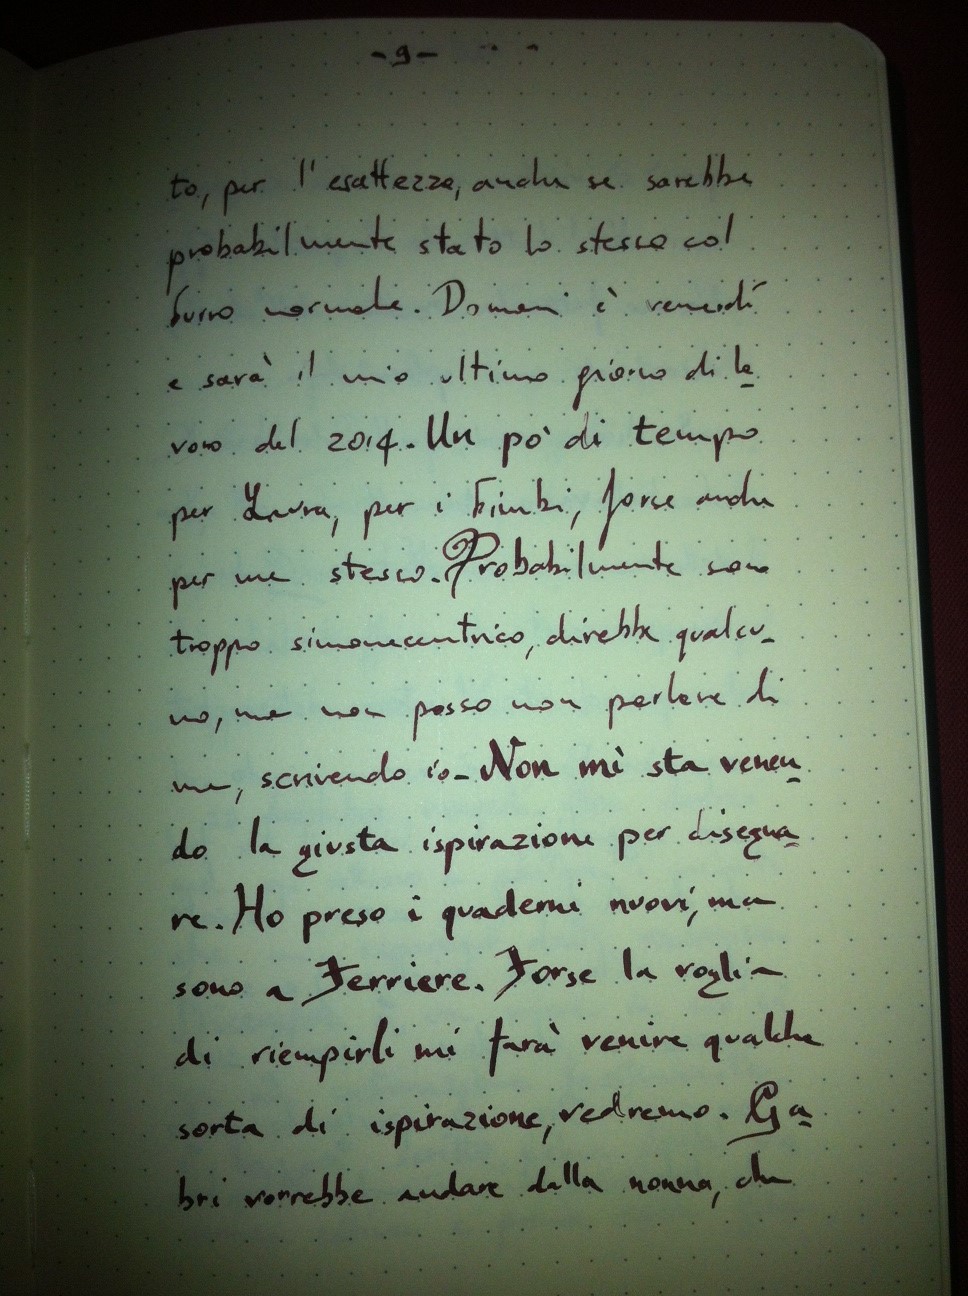 -9-
to, per l'esattezza, anche se sarebbe
probabilmente stato lo stesso col
burro normale. Domani è venerdí
e sarà il mio ultimo giorno di la
voro del 2014. Un pò di tempo
per Laura, per i bimbi, forse anche
per me stesso. Probabilmente sono
troppo simonecentrico, direbbe qualcu-
no, ma non posso non parlare di
me, scrivendo io. Non mi sta venen
do la giusta ispirazione per disegna
re. Ho preso i quaderni nuovi, ma
sono a Ferriere. Forse la voglia
di riempirli mi farà venire qualche
sorta di ispirazione, vedremo. Ga
bri vorrebbe andare dalla nonna, che